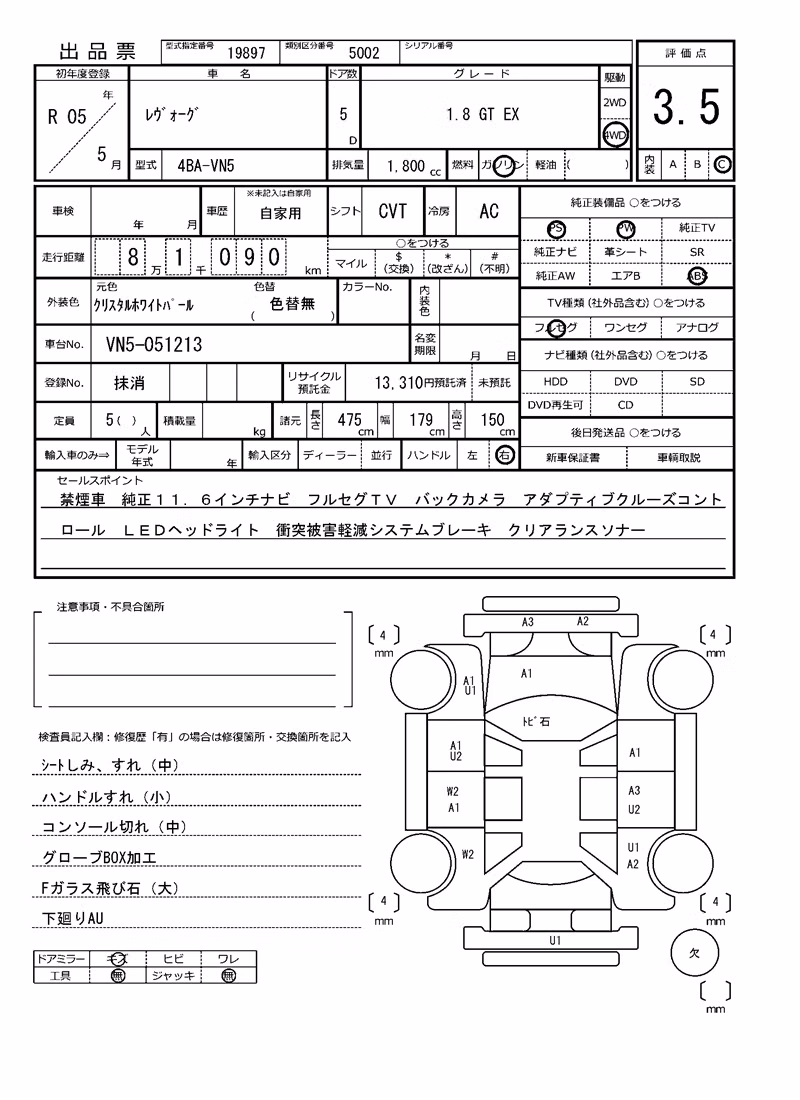 出品票 型式指定番号 19897 類別区分番号 5002 シリアル番号
評価点
3.5
内装 A B C
初年度登録 車名 ドア数 グレード 駆動
R 05 年 5 月
ﾚｳﾞｫｰｸﾞ
5 D
1.8 GT EX
2WD
4WD
型式 4BA-VN5 排気量 1,800 cc 燃料 ガソリン 軽油 ( )
車検 年 月 車歴 ※未記入は自家用 自家用 シフト CVT 冷房 AC
走行距離 8 万 1 千 0 9 0 km
○をつける
マイル $(交換) *(改ざん) #(不明)
外装色 元色 ｸﾘｽﾀﾙﾎﾜｲﾄﾊﾟｰﾙ 色替 ( 色替無 ) カラーNo. 内装色
車台No. VN5-051213 名変期限 月 日
登録No. 抹消 リサイクル預託金 13,310円預託済 未預託
定員 5( ) 人 積載量 kg 諸元 長さ 475 cm 幅 179 cm 高さ 150 cm
輸入車のみ⇒ モデル年式 年 輸入区分 ディーラー 並行 ハンドル 左 右
純正装備品 ○をつける
PS PW 純正TV
純正ナビ 革シート SR
純正AW エアB ABS
TV種類(社外品含む)○をつける
フルセグ ワンセグ アナログ
ナビ種類(社外品含む)○をつける
HDD DVD SD
DVD再生可 CD
後日発送品 ○をつける
新車保証書 車輌取説
セールスポイント
禁煙車 純正１１．６インチナビ フルセグＴＶ バックカメラ アダプティブクルーズコント
ロール ＬＥＤヘッドライト 衝突被害軽減システムブレーキ クリアランスソナー
注意事項・不具合箇所
検査員記入欄：修復歴「有」の場合は修復箇所・交換箇所を記入
ｼｰﾄしみ、すれ（中）
ハンドルすれ（小）
コンソール切れ（中）
グローブBOX加工
Fガラス飛び石（大）
下廻りAU
ドアミラー キズ ヒビ ワレ
工具 無 ジャッキ 無
A3 A2
4 mm
4 mm
A1 U1
A1
ﾄﾋﾞ石
A1 U2
A1
W2 A1
A3 U2
W2
U1 A2
4 mm
4 mm
U1
欠
mm